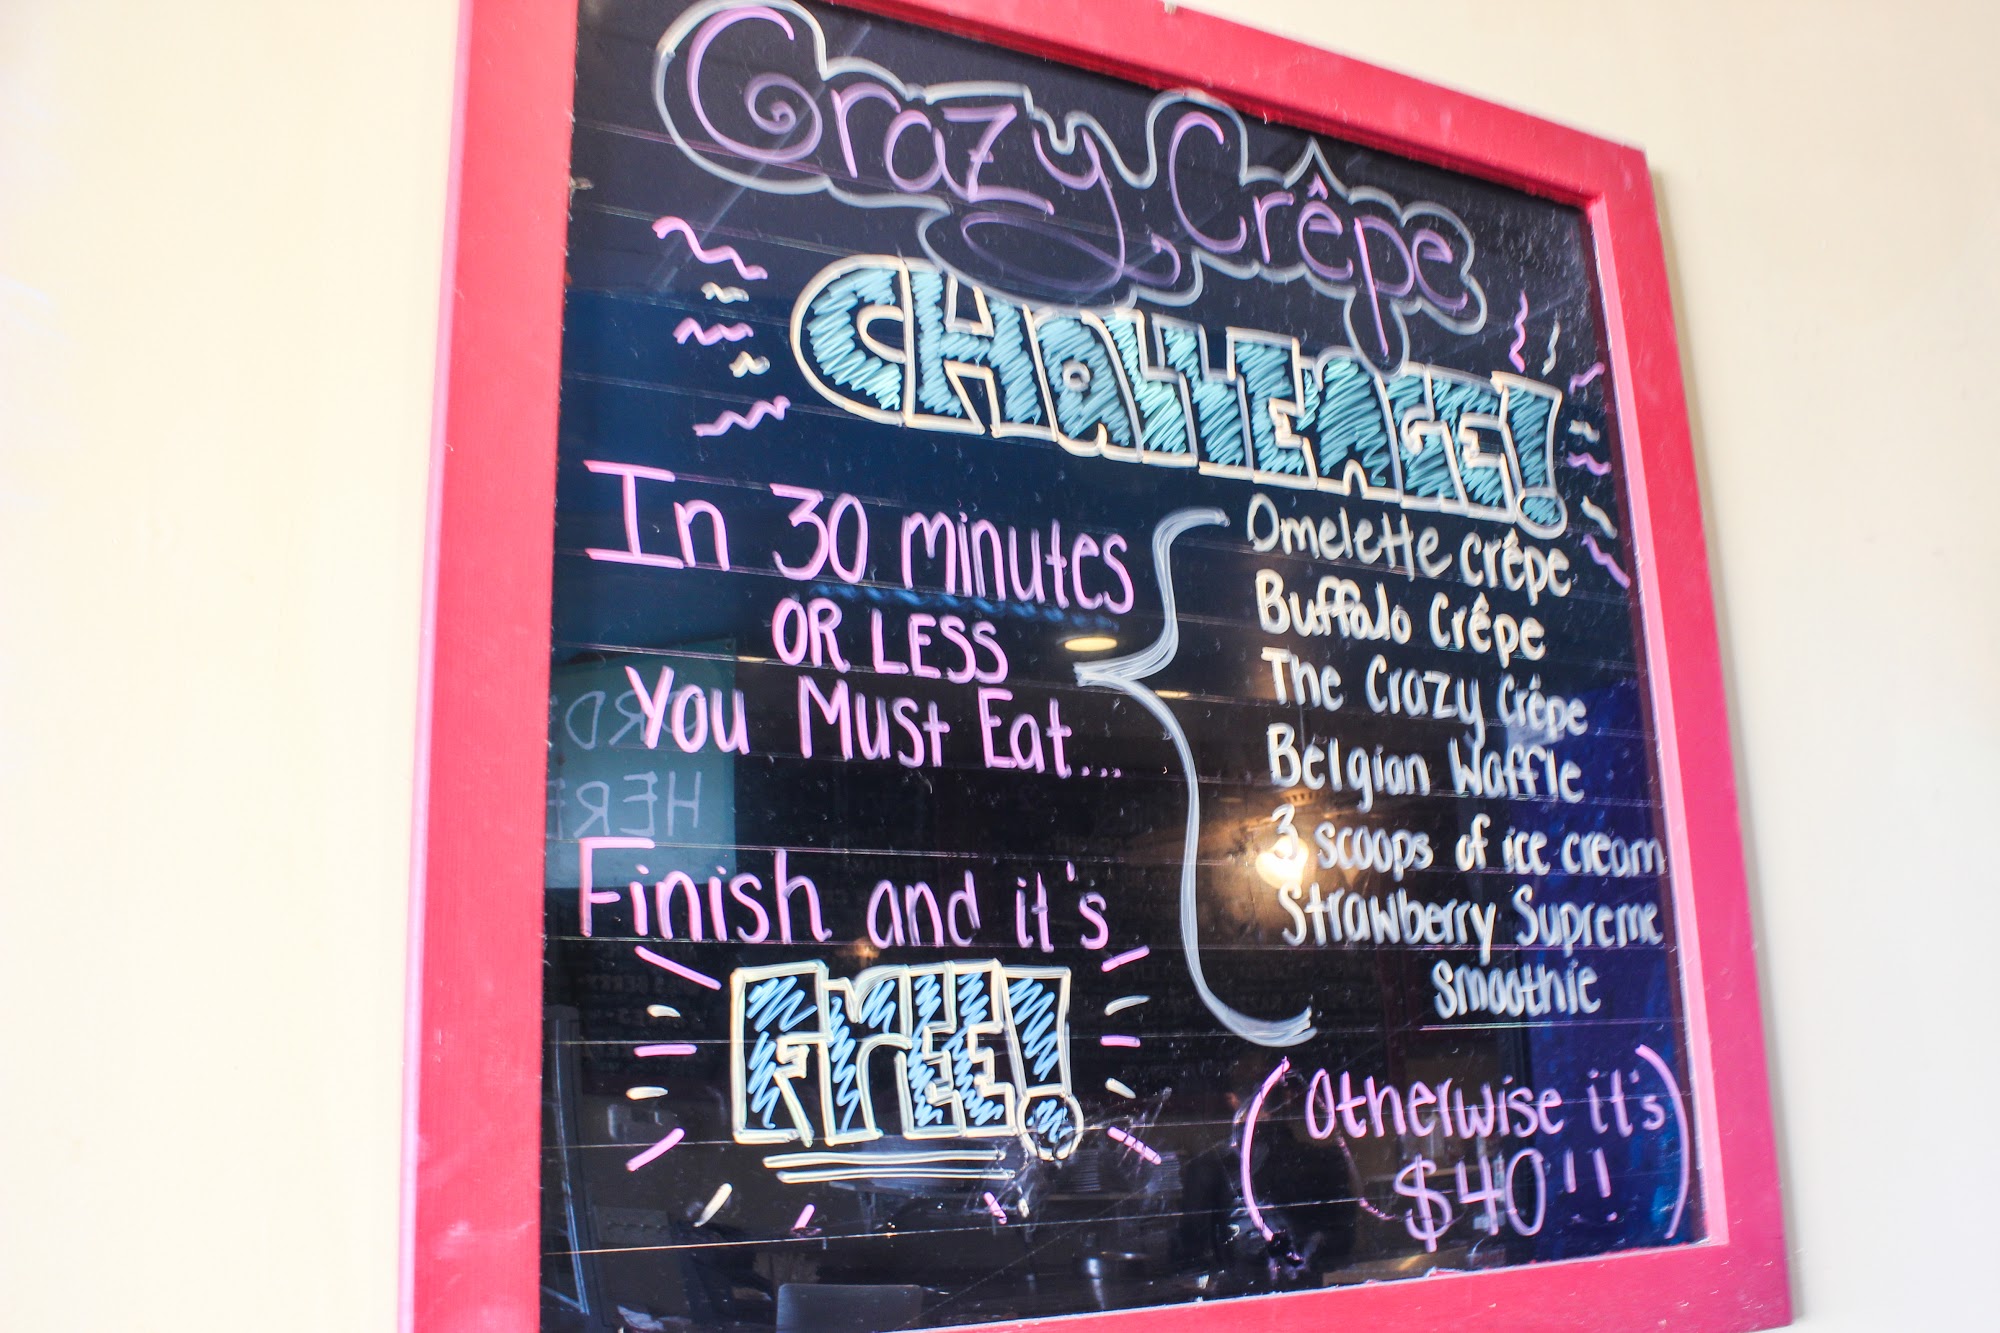 Crazy Crêpe
CHallENGE!
In 30 minutes
OR LESS
You Must Eat...
Omelette crêpe
Buffalo Crêpe
The Crazy Crêpe
Belgian Waffle
3 scoops of ice cream
Strawberry Supreme
Smoothie
Finish and it's
FrEE!
(Otherwise it's
$40!!)
ORDE
HERE